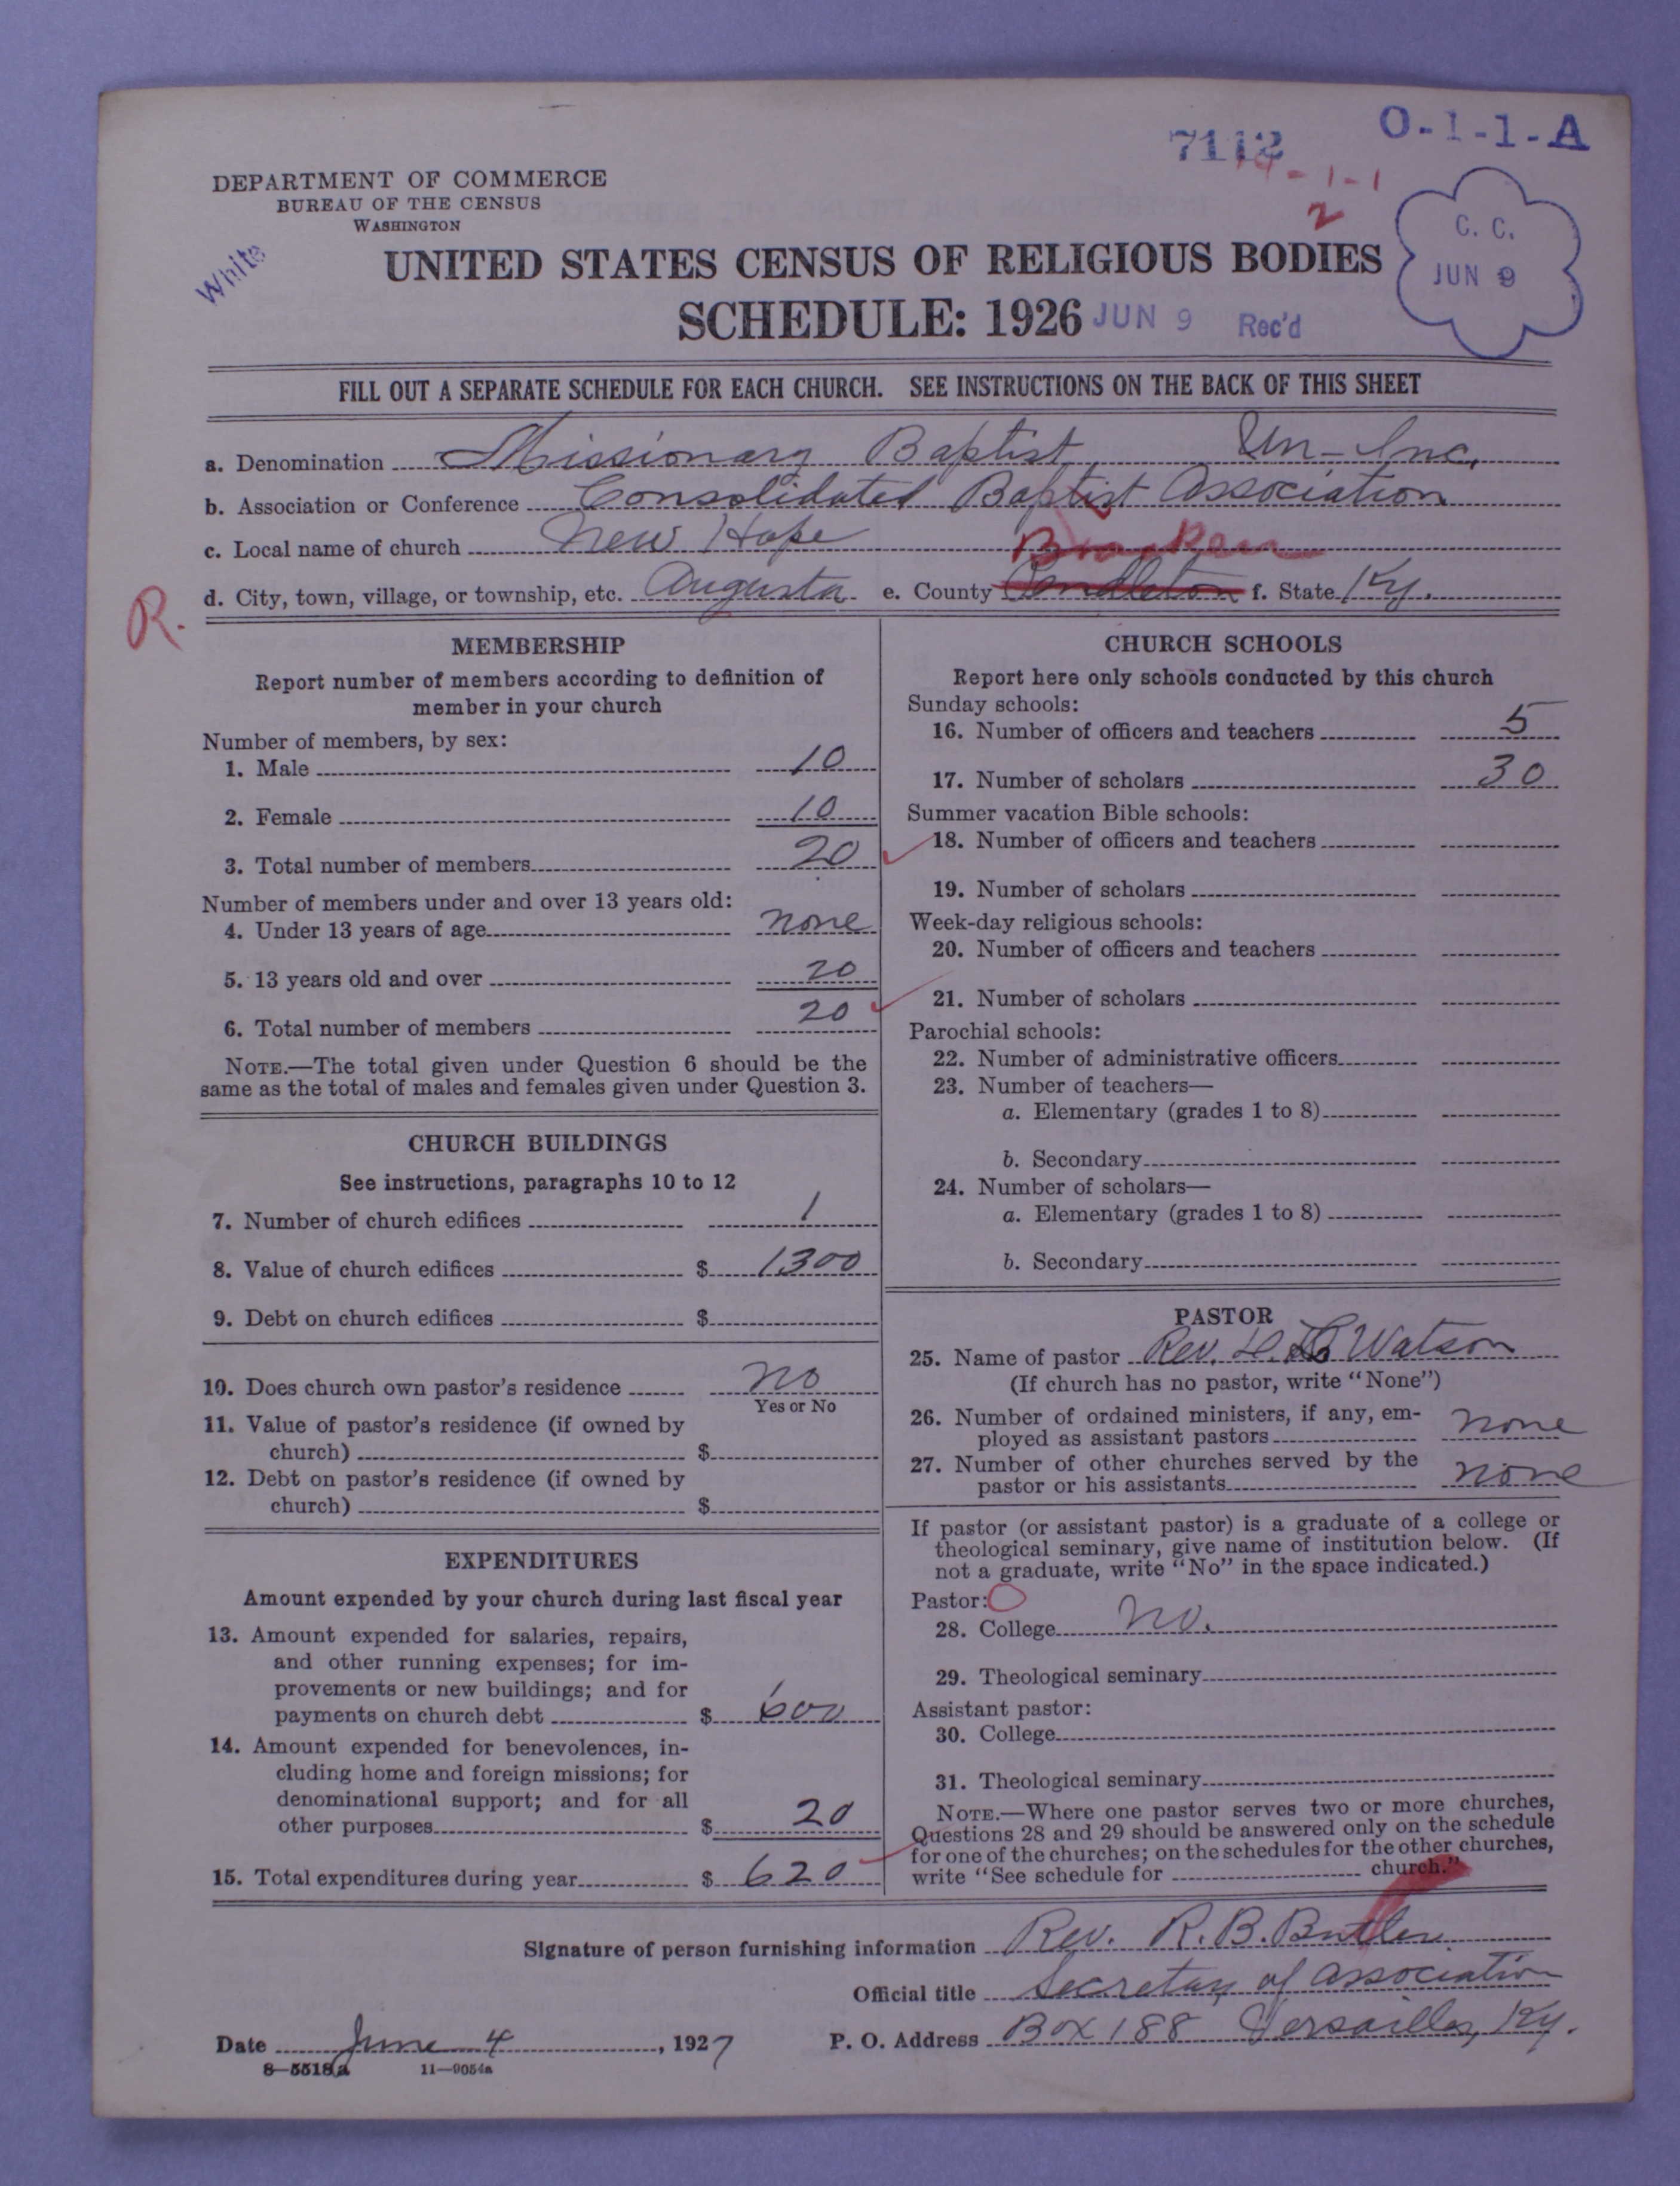 7112
O-1-1-A
- 1-1
2
DEPARTMENT OF COMMERCE
BUREAU OF THE CENSUS
WASHINGTON
White
C. C.
JUN 9
UNITED STATES CENSUS OF RELIGIOUS BODIES
SCHEDULE: 1926
JUN 9 Rec'd
FILL OUT A SEPARATE SCHEDULE FOR EACH CHURCH. SEE INSTRUCTIONS ON THE BACK OF THIS SHEET
a. Denomination Missionary Baptist Un-Inc.
b. Association or Conference Consolidated Baptist Association
c. Local name of church New Hope
Bracken
d. City, town, village, or township, etc. Augusta e. County Pendleton f. State Ky.
R.
MEMBERSHIP
Report number of members according to definition of
member in your church
Number of members, by sex:
1. Male 10
2. Female 10
3. Total number of members 20
Number of members under and over 13 years old:
4. Under 13 years of age none
5. 13 years old and over 20
6. Total number of members 20
NOTE.—The total given under Question 6 should be the
same as the total of males and females given under Question 3.
CHURCH BUILDINGS
See instructions, paragraphs 10 to 12
7. Number of church edifices 1
8. Value of church edifices $ 1300
9. Debt on church edifices $
10. Does church own pastor's residence no
Yes or No
11. Value of pastor's residence (if owned by
church) $
12. Debt on pastor's residence (if owned by
church) $
EXPENDITURES
Amount expended by your church during last fiscal year
13. Amount expended for salaries, repairs,
and other running expenses; for im-
provements or new buildings; and for
payments on church debt $ 600
14. Amount expended for benevolences, in-
cluding home and foreign missions; for
denominational support; and for all
other purposes $ 20
15. Total expenditures during year $ 620
CHURCH SCHOOLS
Report here only schools conducted by this church
Sunday schools:
16. Number of officers and teachers 5
17. Number of scholars 30
Summer vacation Bible schools:
18. Number of officers and teachers
19. Number of scholars
Week-day religious schools:
20. Number of officers and teachers
21. Number of scholars
Parochial schools:
22. Number of administrative officers
23. Number of teachers—
a. Elementary (grades 1 to 8)
b. Secondary
24. Number of scholars—
a. Elementary (grades 1 to 8)
b. Secondary
PASTOR
25. Name of pastor Rev. Watson
(If church has no pastor, write "None")
26. Number of ordained ministers, if any, em-
ployed as assistant pastors none
27. Number of other churches served by the
pastor or his assistants none
If pastor (or assistant pastor) is a graduate of a college or
theological seminary, give name of institution below. (If
not a graduate, write "No" in the space indicated.)
Pastor: O
28. College no.
29. Theological seminary
Assistant pastor:
30. College
31. Theological seminary
NOTE.—Where one pastor serves two or more churches,
Questions 28 and 29 should be answered only on the schedule
for one of the churches; on the schedules for the other churches,
write "See schedule for church."
Signature of person furnishing information Rev. R. B. Butler.
Official title Secretary of Association
Date June 4, 1927
P. O. Address Box 188 Versailles, Ky.
8—5518a 11—9054a